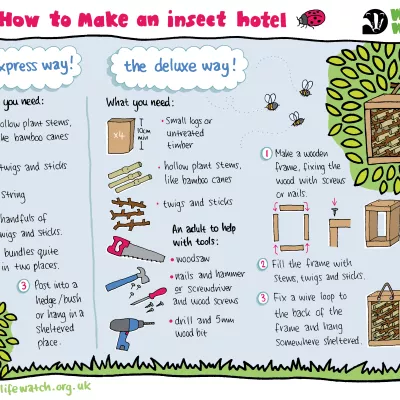 How to Make an insect hotel
xpress way!
you need:
hollow plant stems,
like bamboo canes
twigs and sticks
string
handfuls of
twigs and sticks.
bundles quite
in two places.
3 Post into a
hedge/bush
or hang in a
sheltered
place.
the deluxe way!
What you need:
x4
10cm
min
• Small logs or
untreated
timber
• hollow plant stems,
like bamboo canes
• twigs and sticks
An adult to help
with tools:
• woodsaw
• nails and hammer
or screwdriver
and wood screws
• drill and 5mm
wood bit
1 Make a wooden
frame, fixing the
wood with screws
or nails.
2 Fill the frame with
stems, twigs and sticks.
3 Fix a wire loop to
the back of the
frame and hang
somewhere sheltered.
lifewatch.org.uk